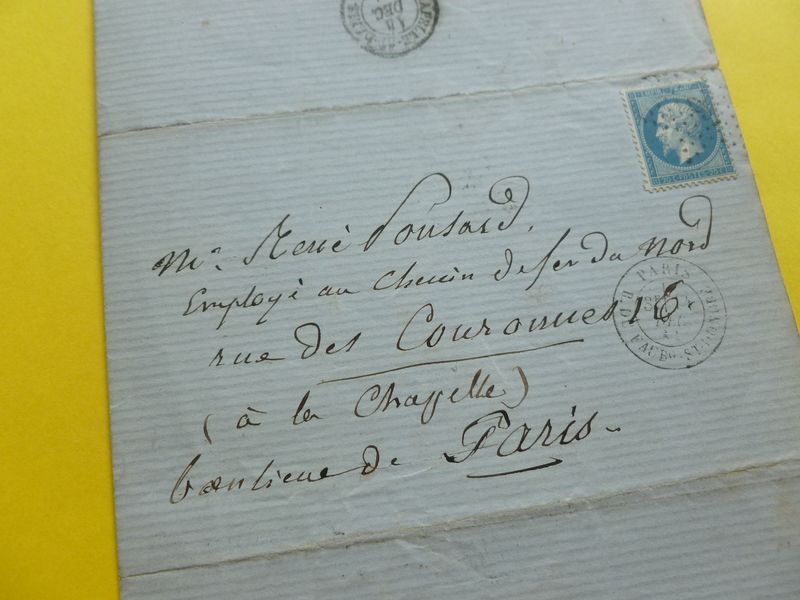 DEC.
EMPIRE FRANC
20 C POSTES 20 C
Mr René Ponsard,
Employé au Chemin de fer du Nord
rue des Couronnes 16
(à la Chapelle)
banlieue de Paris.
PARIS
R. DU FAUBG. ST-